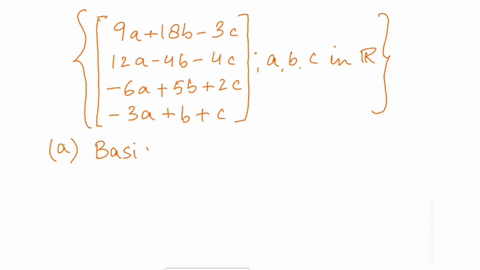 9a+18b-3c
12a-4b-4c
-6a+5b+2c
-3a+b+c
; a, b, c in ℝ
(a) Basi